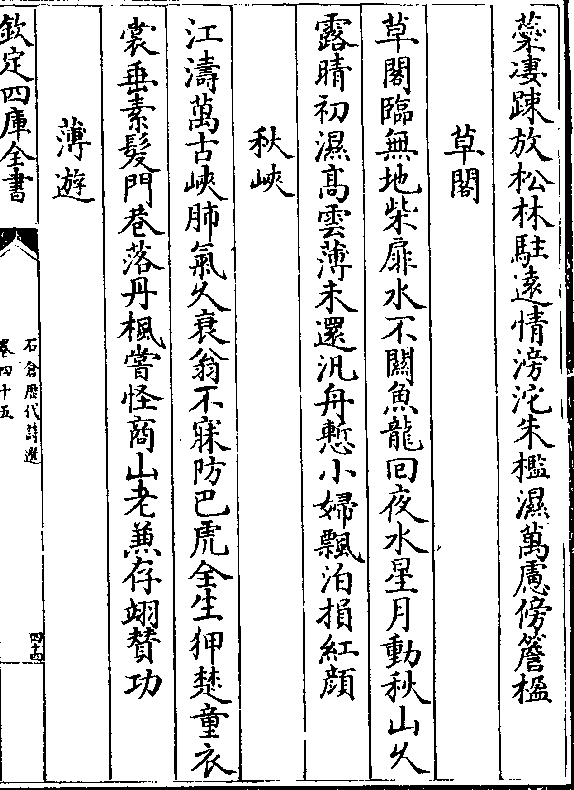 蘂凄踈放松林駐遠情滂沱朱檻濕萬慮傍簷楹
草閣
草閣臨無地柴扉水不關魚龍囘夜水星月動秋山久
露晴初濕髙雲薄未還汎舟慙小婦飄泊損紅顔
秋峽
江濤萬古峽肺氣久衰翁不寐防巴虎全生狎楚童衣
裳垂素髮門巷落丹楓嘗怪商山老兼存翊贊功
薄遊
欽定四庫全書
石倉歴代詩選
卷四十五
四十四